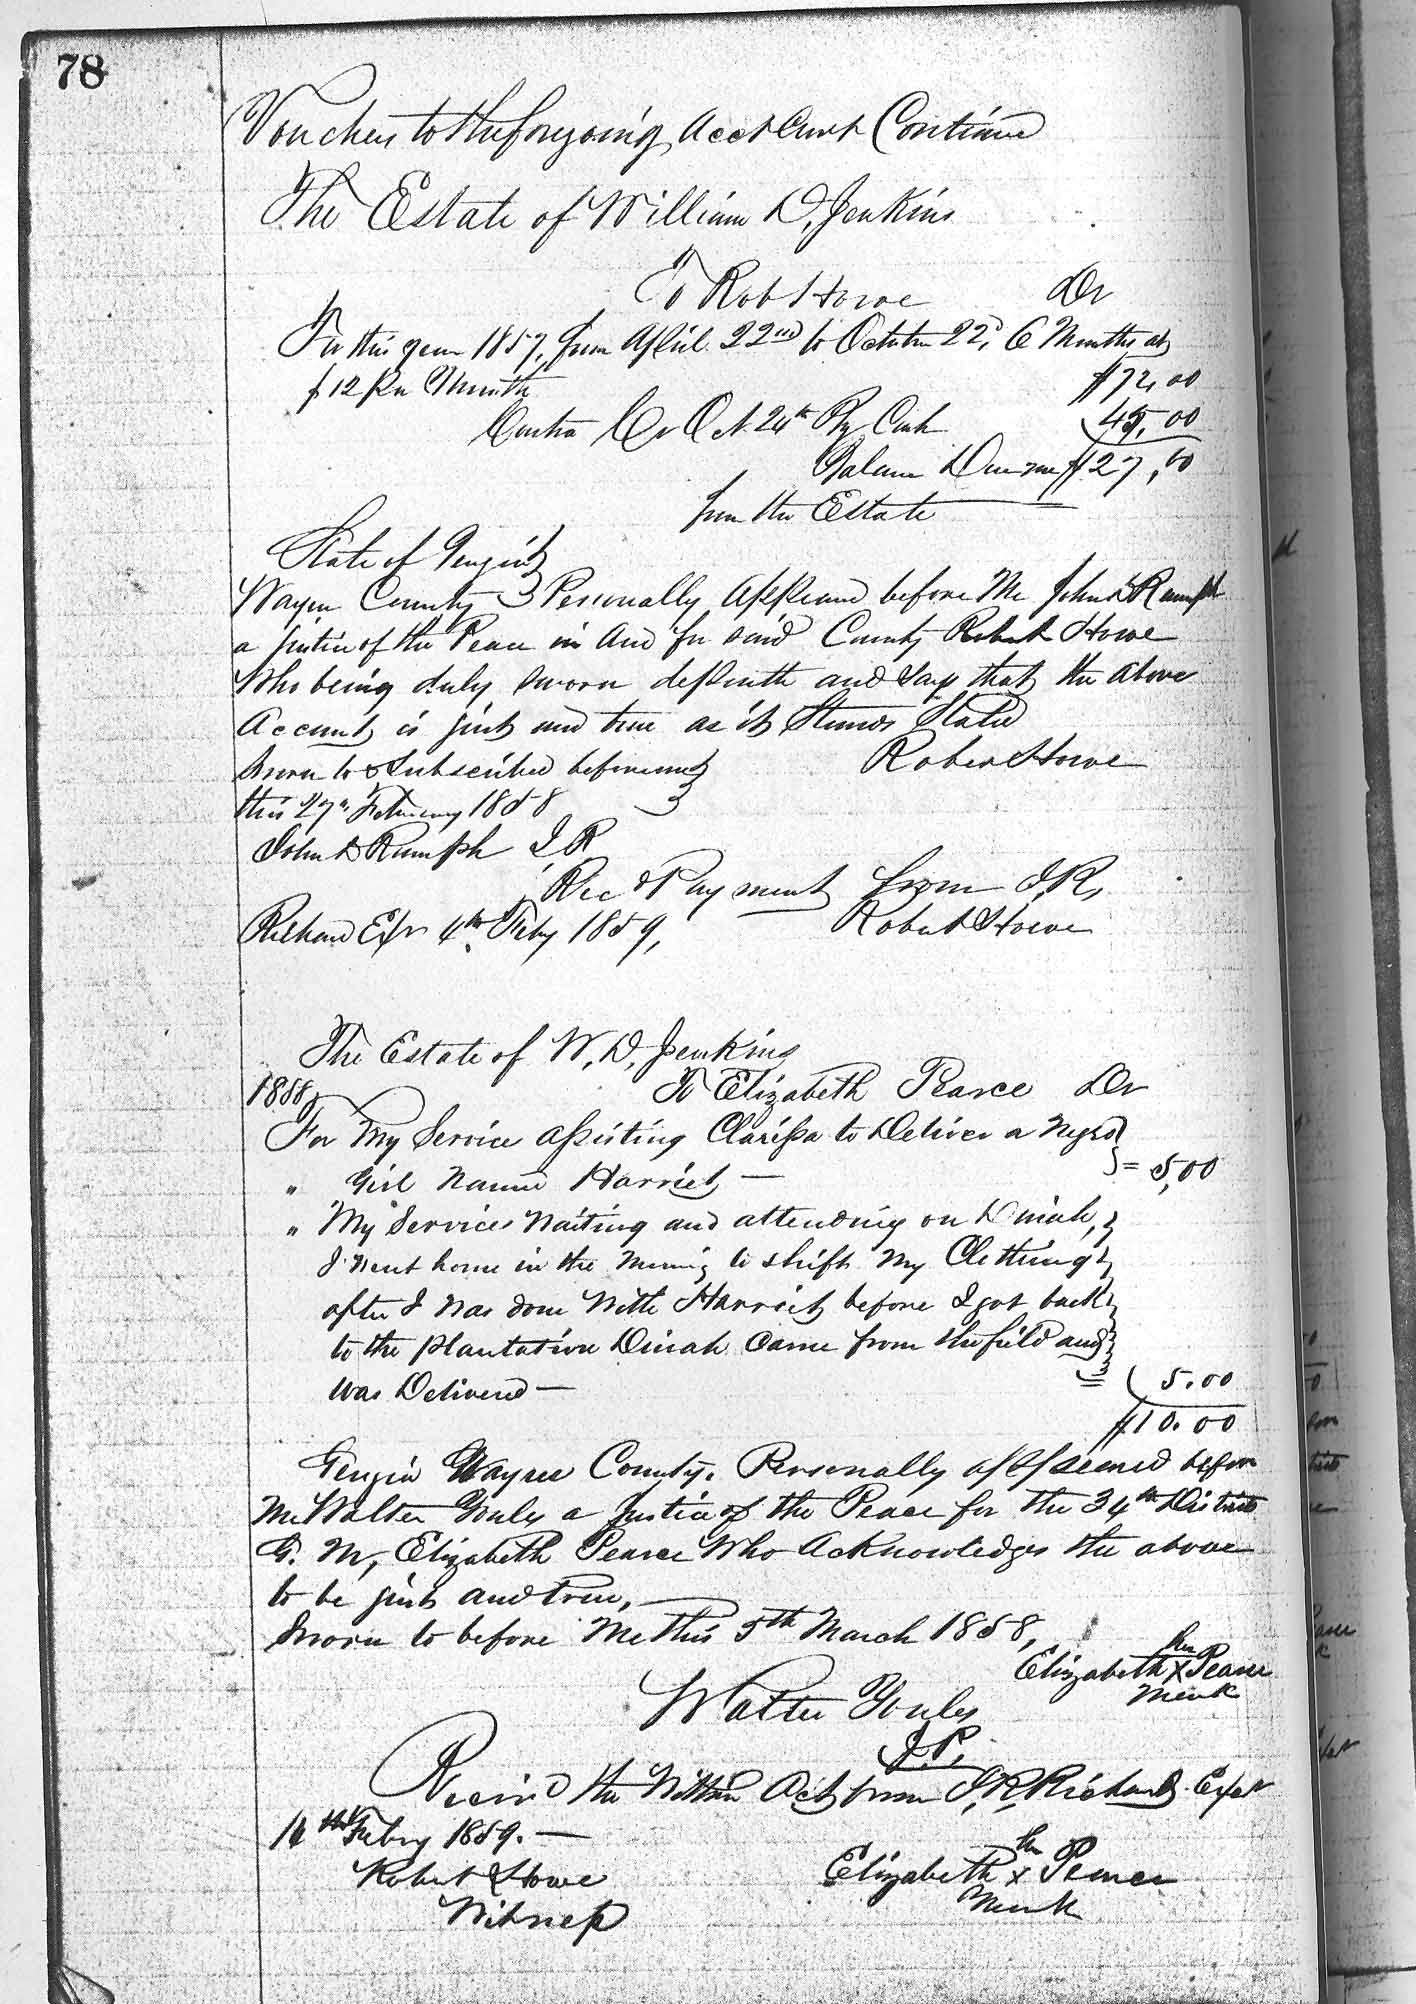 78
Vouchers to the foregoing Acct Curt Continued
The Estate of William D. Jenkins
To Robt Howe Dr
For this year 1857, from April 22nd to October 22d, 6 Months at
$12 Per Month $72,00
Contra Cr Oct 24th By Cash 45,00
Balance Due me $27,00
from the Estate
State of Georgia
Wayne County Personally Appeared before Me John D Rumph
a Justice of the Peace in And for said County Robert Howe
Who being duly sworn deposeth and Says that the above
Account is just and true as it Stands Stated
Robert Howe
Sworn to & Subscribed before me
this 27th February 1858
John D Rumph J P
Recd Payment from J. R,
Richard Exr 4th Feby 1859,
Robert Howe
The Estate of W. D. Jenkins
1858 To Elizabeth Pearce Dr
For My Service Assisting Clarissa to Deliver a Negro
" Girl Named Harriet — = 5,00
" My Services Waiting and attending on Dinah,
I went home in the Morning to shift My Clothing
after I was done With Harriet before I got back
to the plantation Dinah Came from the field and
was Delivered — = 5.00
$10.00
Georgia Wayne County. Personally appeared before
Me Walter a Justice of the Peace for the 34th District
G. M, Elizabeth Pearce Who Acknowledges the above
to be just and true,
Sworn to before Me this 5th March 1858,
her
Elizabeth X Pearce
Mark
Walter
J. P.
Receivd the Within Act from J. R. Richards Exer
14th Febry 1859. —
Robert Howe
Witness
her
Elizabeth x Pearce
Mark